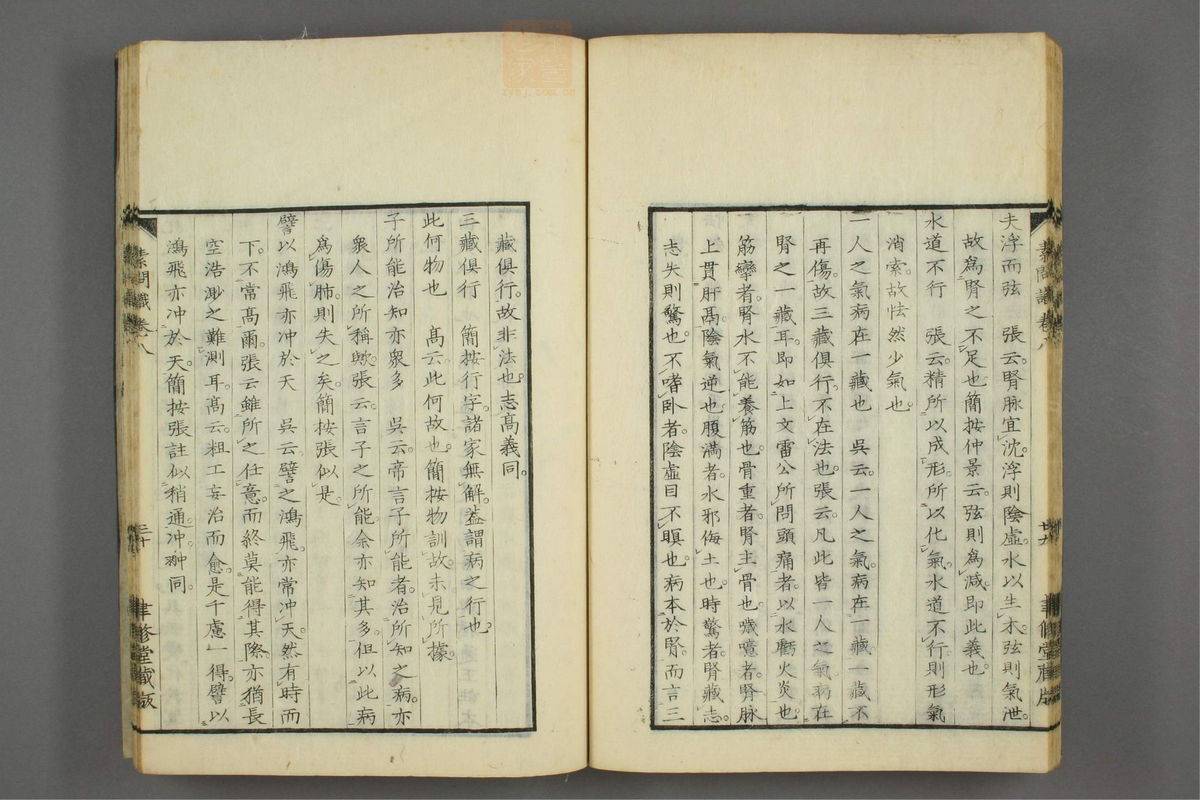 夫浮而弦　張云。腎脉宜沈。浮則陰虛。水以生木。弦則氣泄。
故爲腎之不足也。簡按仲景云。弦則爲減。即此義也。
水道不行　張云。精所以成形。所以化氣。水道不行。則形氣
消索。故怯然少氣也。
一人之氣病在一藏也　吳云。一人之氣。病在一藏。一藏不
再傷。故三藏俱行。不在法也。張云。凡此皆一人之氣。病在
腎之一藏耳。即如上文雷公所問頭痛者。以水虧火炎也。
筋攣者。腎水不能養筋也。骨重者。腎主骨也。噦噫者。腎脉
上貫肝鬲。陰氣逆也。腹滿者。水邪侮土也。時驚者。腎藏志。
志失則驚也。不嗜卧者。陰虛目不瞑也。病本於腎。而言三
素問識 卷八
廿九
聿修堂藏版
藏俱行。故非法也。志高義同。
三藏俱行　簡按行字。諸家無解。葢謂病之行也。
此何物也　高云。此何故也。簡按物訓故。未見所據。
子所能治知亦衆多　吳云。帝言子所能者。治所知之病。亦
衆人之所稱歟。張云。言子之所能。余亦知其多。但以此病
爲傷肺。則失之矣。簡按張似是。
譬以鴻飛亦冲於天　吳云。譬之鴻飛。亦常冲天。然有時而
下。不常高爾。張云。雖所之任意。而終莫能得其際。亦猶長
空浩渺之難測耳。高云。粗工妄治而愈。是千慮一得。譬以
鴻飛亦冲於天。簡按張註似稍通。冲翀同。
素問識 卷八
三十
聿修堂藏版